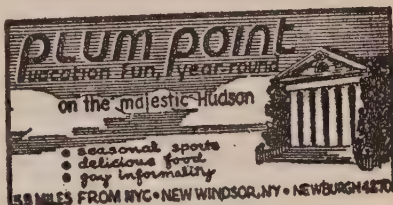 plum point
vacation fun, year-round
on the majestic Hudson
• seasonal sports
• delicious food
• gay informality
MILES FROM NYC • NEW WINDSOR, NY • NEWBURGH 4270